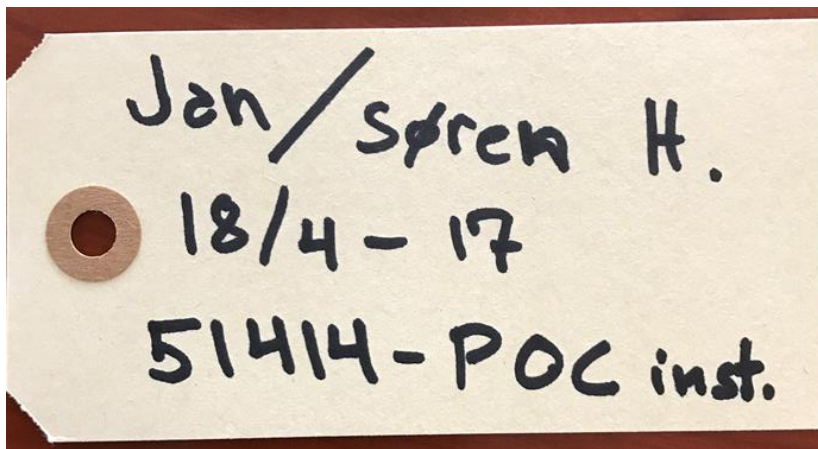 Jan/Søren H.
18/4-17
51414-POC inst.